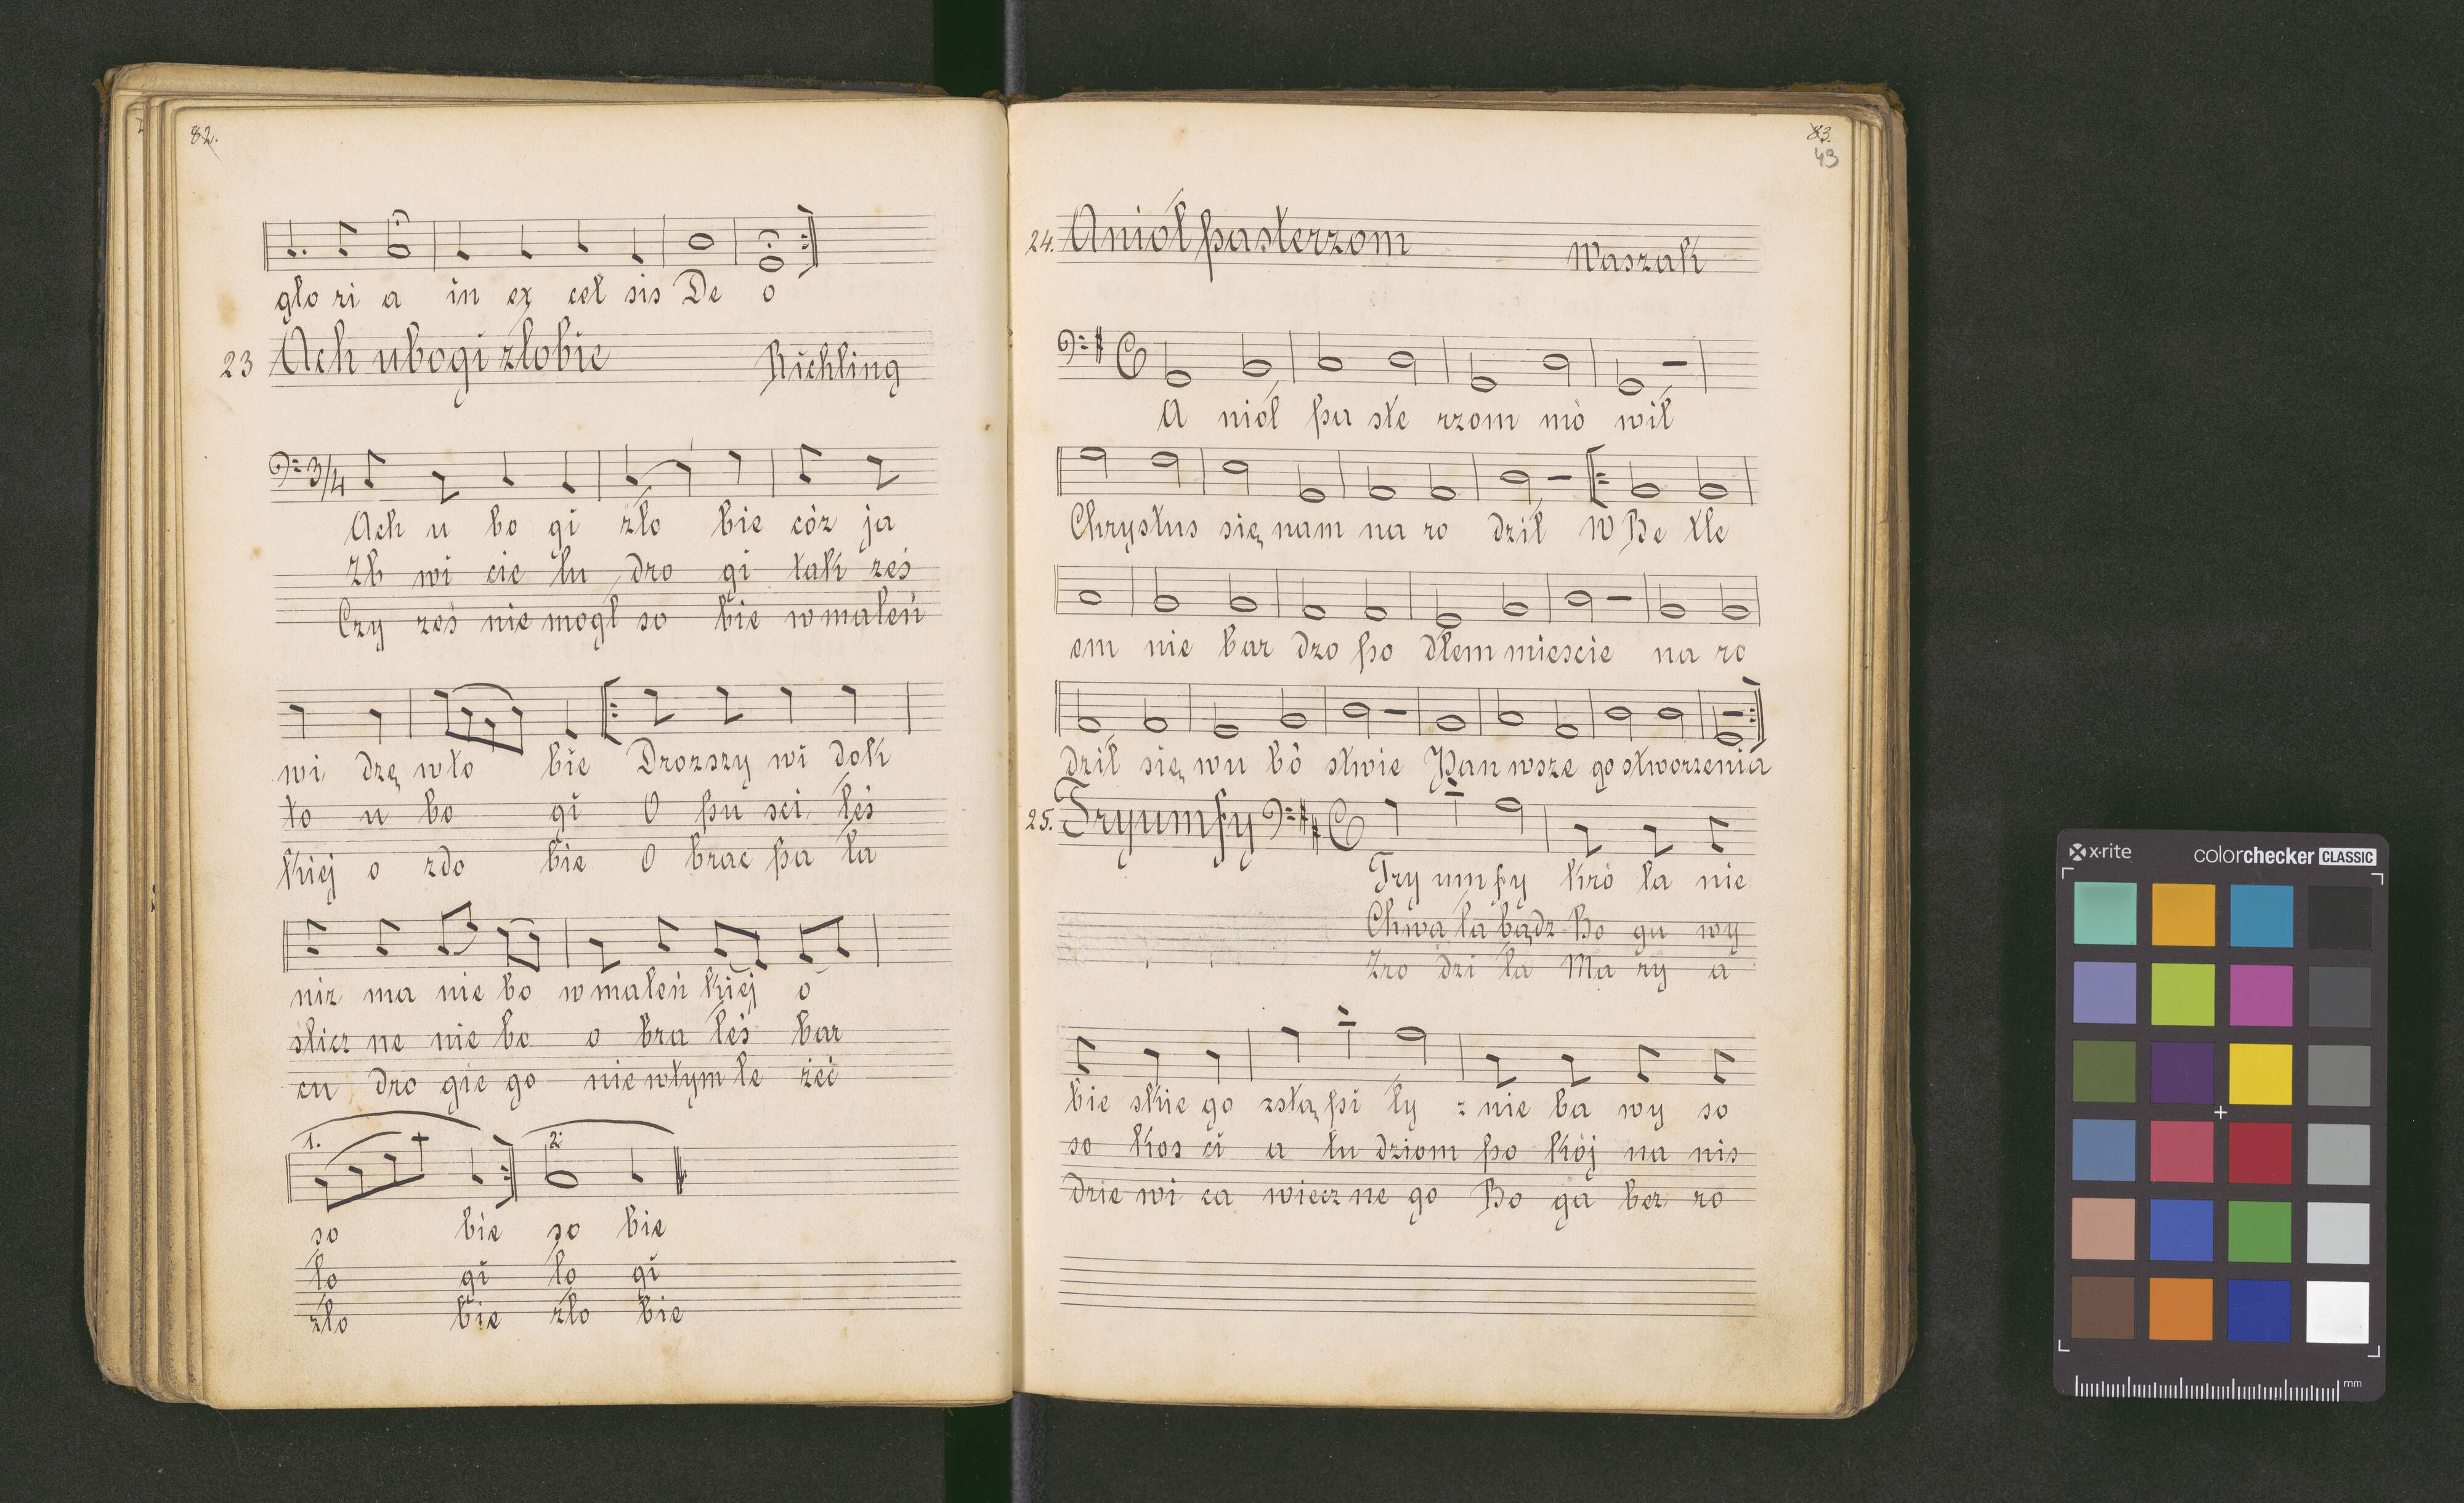 82.
glo ri a in ex cel sis De o
23 Ach ubogi złobie Richling
3/4
Ach u bo gi zło bie cóz ja
Zb wi cie lu dro gi takześ
Czyześ nie mogł so bie w maleń
wi dzę w to bie Drozszy wi dok
to u bo gi O pu sci łeś
kiej o zdo bie O brac pa ła
niz ma nie bo w maleń kiej o
slicz ne nie bo o bra łeś bar
cu dro gie go nie w tym le żeć
1. 2.
so bie so bie
ło gi ło gi
zło bie zło bie
83.
43
24. Aniół pasterzom Waszak
A niół pa ste rzom mò wił
Chrystus się nam na ro dził W Be tle
em nie bar dzo po dłem miescie na ro
dził się wu bò stwie Pan wsze go stworzenia
25. Tryumfy
Try um fy kró la nie
Chwa ła bądz Bo gu wy
Zro dzi ła Ma ry a
bie skie go zstą pi ły z nie ba wy so
so kos ci a lu dziom po kój na nis
dzie wi ca wiecz ne go Bo ga bez ro
x-rite colorchecker CLASSIC
mm